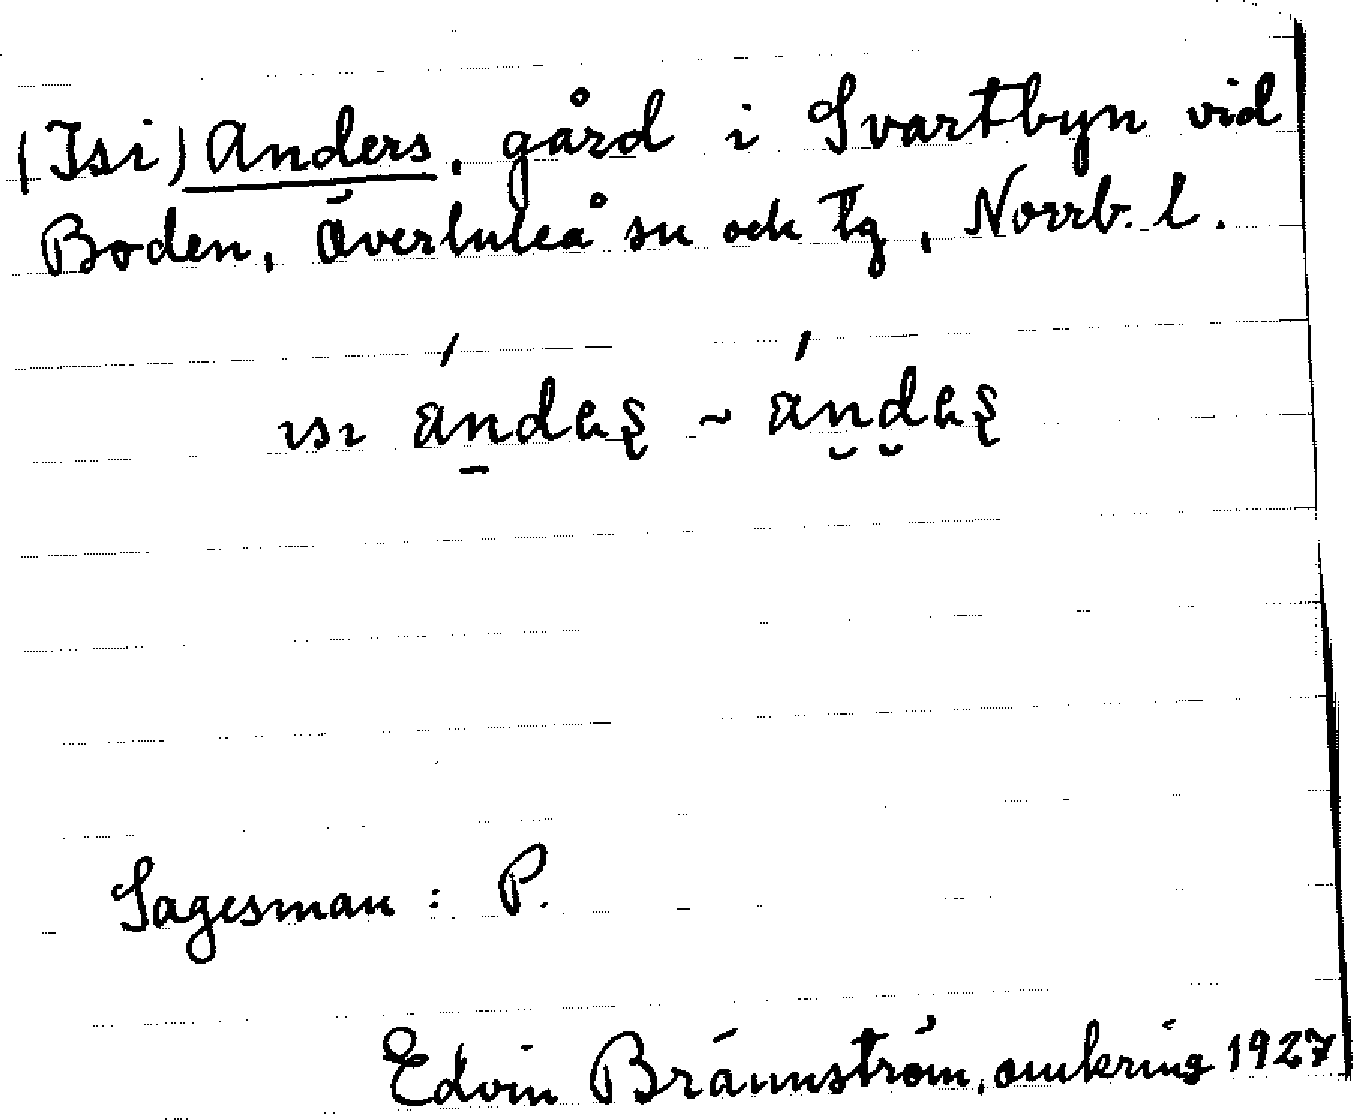 (Isi) Anders, gård i Svartbyn vid
Boden, Överluleå sn och tg, Norrb. l.
ɪsɪ ándeʂ ~ ándeʂ
Sagesman: P.
Edvin Brännström, omkring 1927